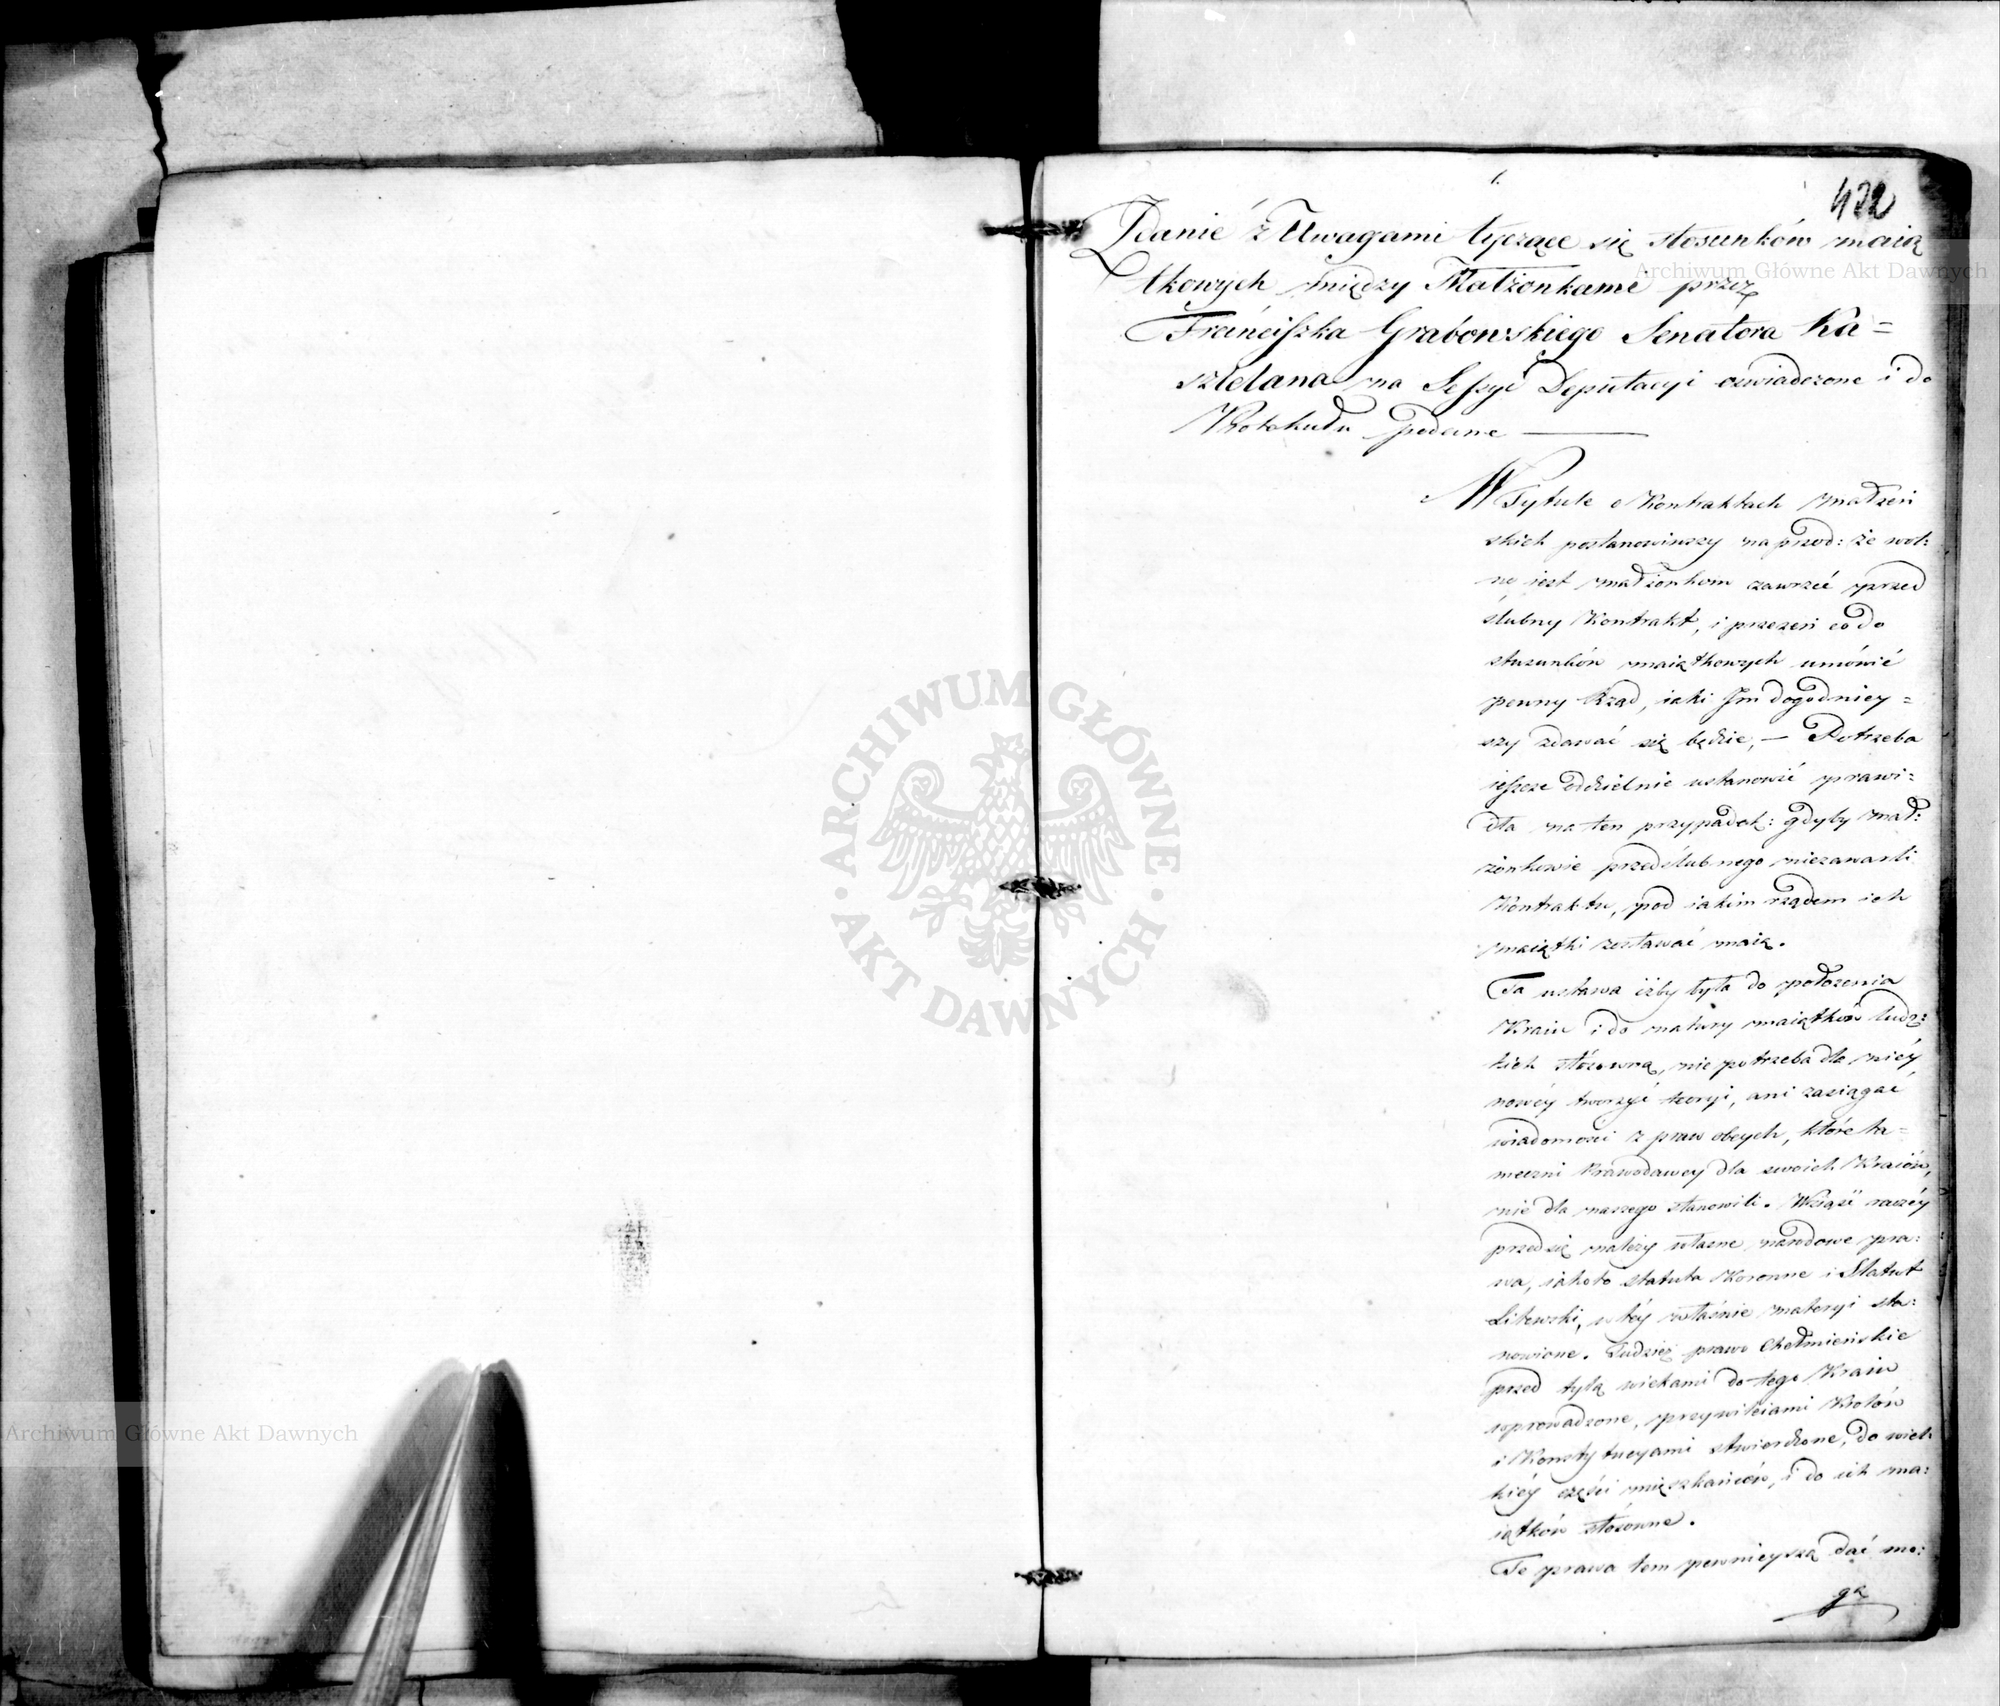 1.
422
Zdanie z Uwagami tyczące się stosunków maią
tkowych między Małżonkami przez
Franciszka Grabowskiego Senatora Ka=
sztelana na Sessyi Deputacyi oświadczone i do
Protokułu podane —
W Tytule o Kontraktach małżeń
skich postanowiwszy naprzod: że wol:
no jest małżonkom zawrzeć przed
ślubny Kontrakt, i przezeń co do
stosunków maiątkowych umówić
pewny Rząd, iaki Im dogodniey=
szy zdawać się będzie, — Potrzeba
ieszcze oddzielnie ustanowić prawi:
dła na ten przypadek: gdyby mał:
żonkowie przedślubnego niezawarli
Kontraktu, pod iakim rządem ich
maiątki zostawać maią.
Ta ustawa iżby była do położenia
Kraiu i do natury maiątków ludz:
kich stosowną, nie potrzeba dla niéy
nowéy tworzyć teoryi, ani zasięgać
wiadomości z praw obcych, które ta=
meczni Prawodawcy dla swoich Kraiów,
nie dla naszego stanowili. Wziąść raczéy
przed się należy własne narodowe pra:
wa, iakoto statuta Koronne i Statut
Litewski, w téy właśnie materyi sta:
nowione. Tudzież prawo Chełmieńskie
przed tylą wiekami do tego Kraiu
wprowadzone, przywileiami Królów
i Konstytucyami stwierdzone, do wiel
kiéy części mieszkańców, i do ich ma:
iątków stosowne.
Te prawa tem pewnieyszą dać mo:
gą
Archiwum Główne Akt Dawnych
Archiwum Główne Akt Dawnych
ARCHIWUM GŁÓWNE
AKT DAWNYCH